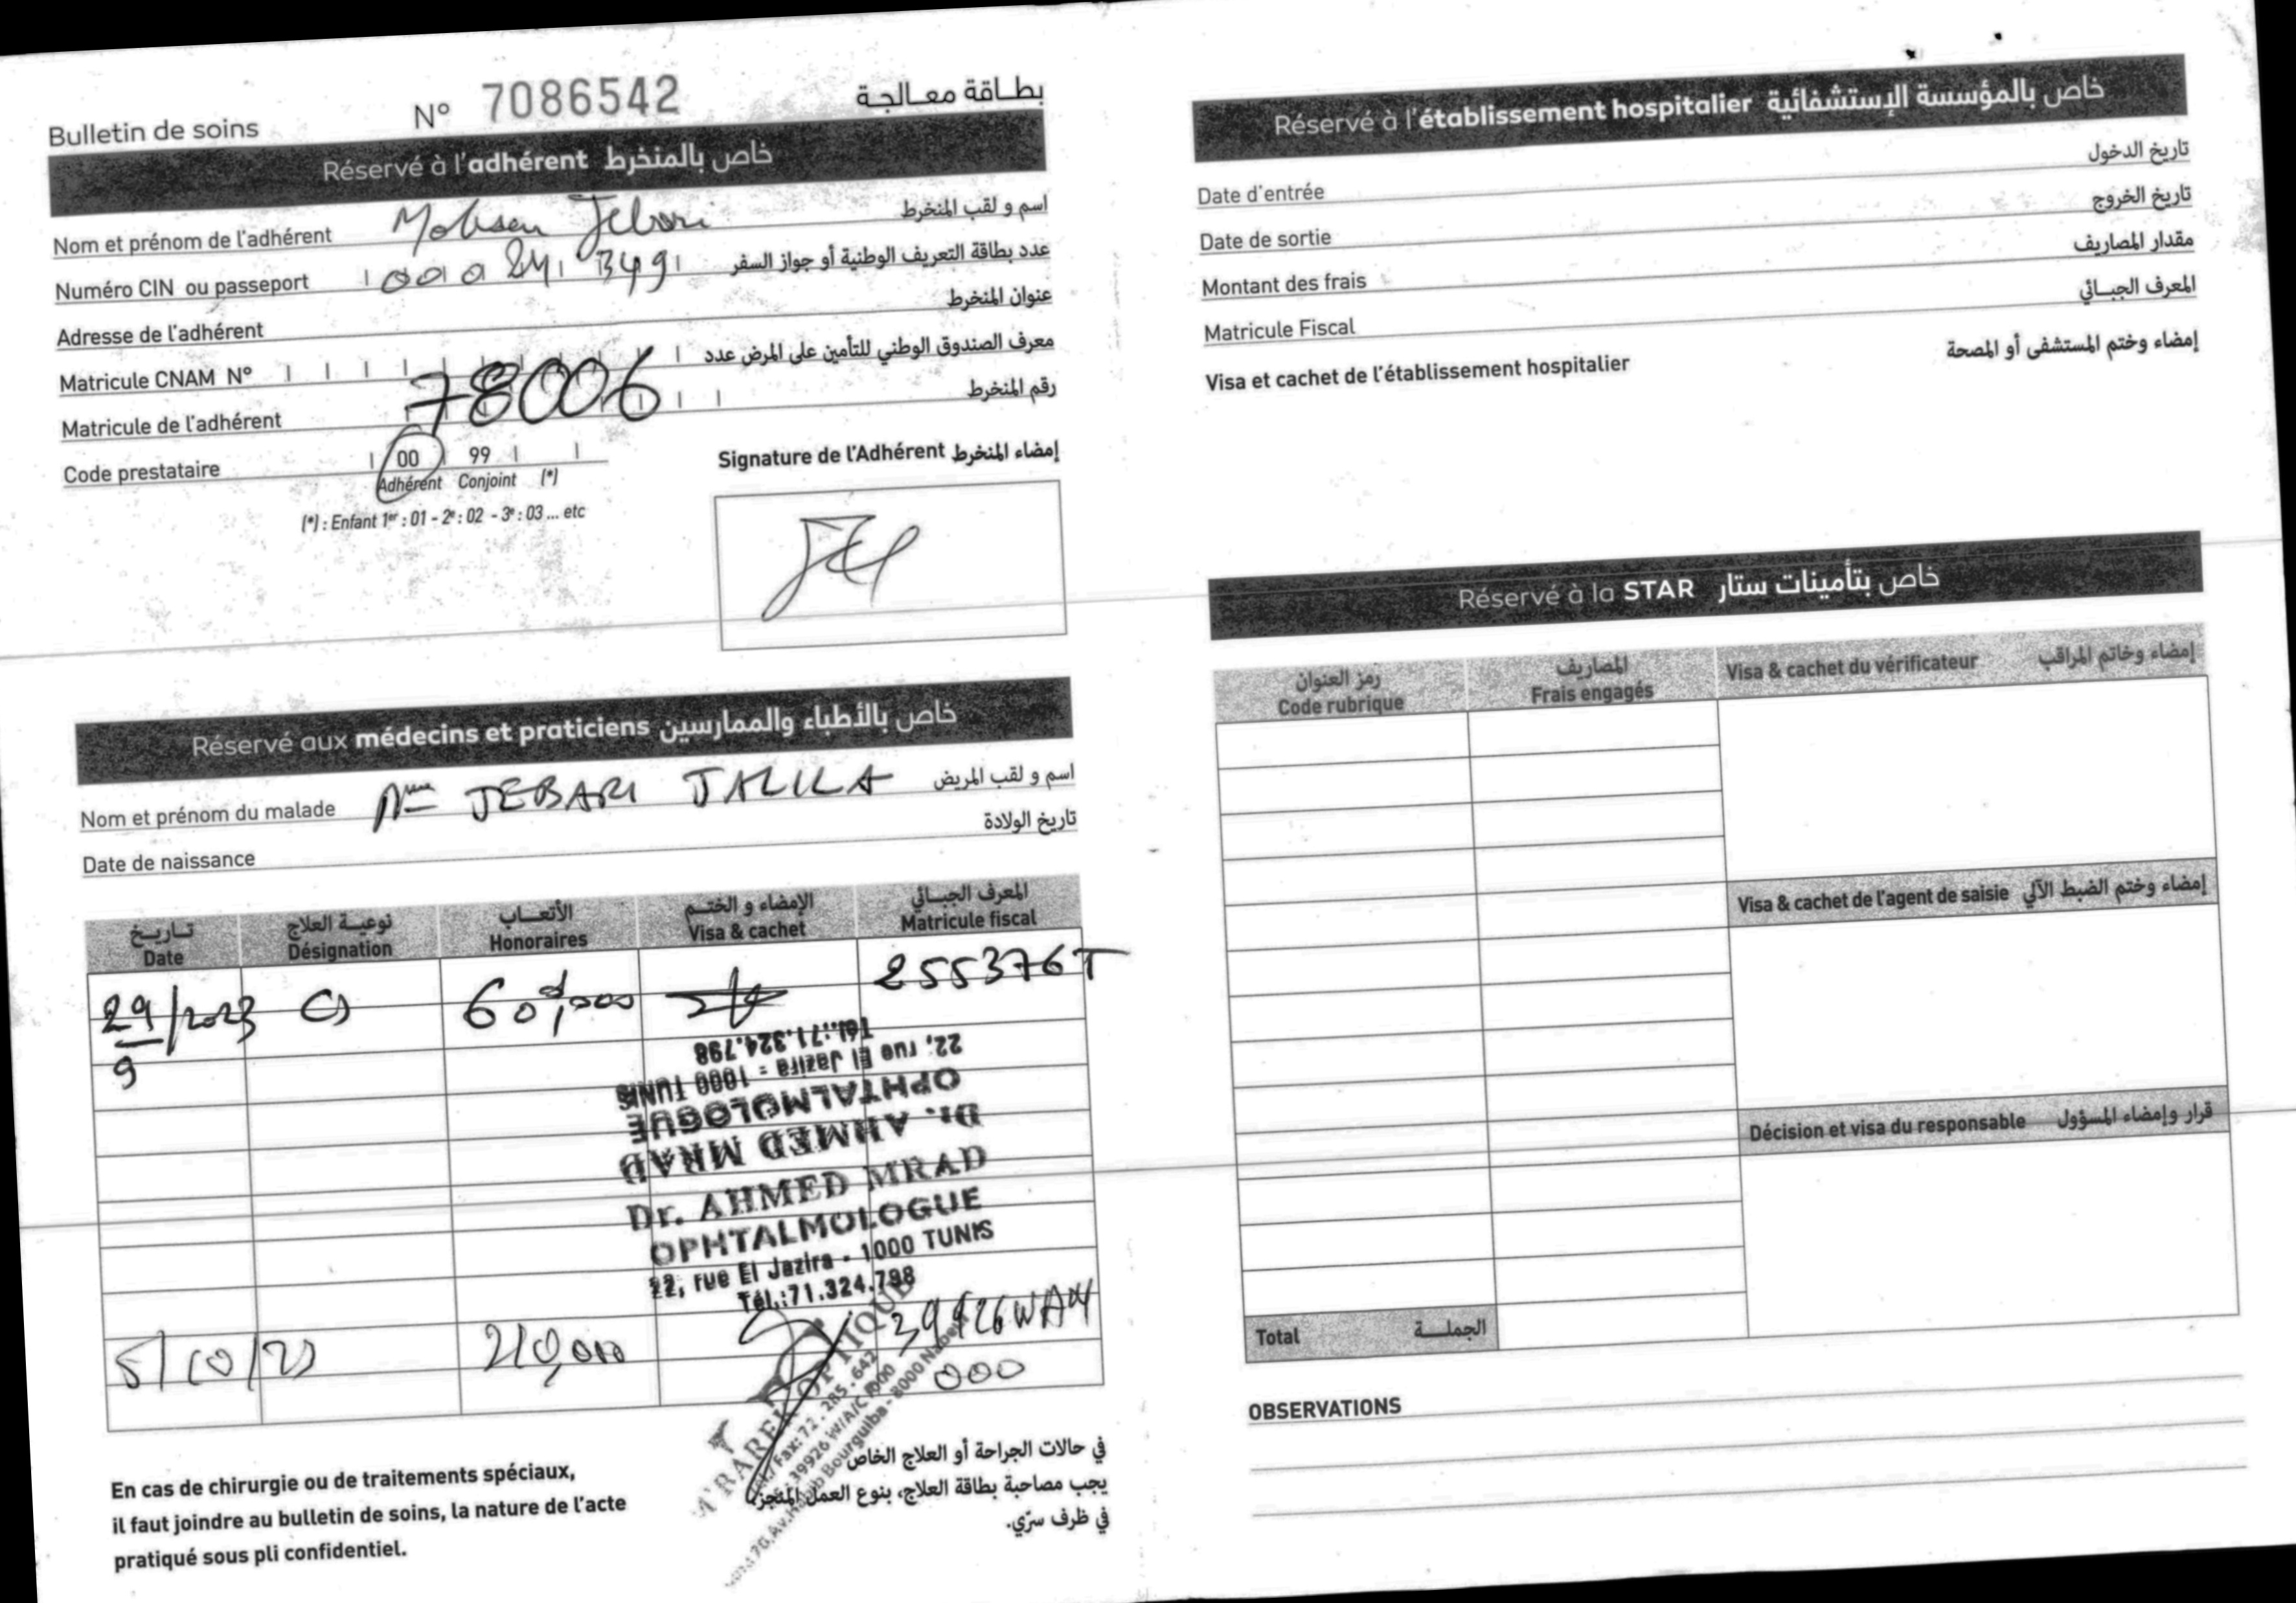 Bulletin de soins N° 7086542 بطـاقة معـالجـة
Réservé à l'adhérent خاص بالمنخرط
Nom et prénom de l'adhérent Mohsen Jebari اسم و لقب المنخرط
Numéro CIN ou passeport عدد بطاقة التعريف الوطنية أو جواز السفر
Adresse de l'adhérent عنوان المنخرط
Matricule CNAM N° معرف الصندوق الوطني للتأمين على المرض عدد
Matricule de l'adhérent 78006 رقم المنخرط
Code prestataire 00 99
Adhérent Conjoint (*)
(*) : Enfant 1er : 01 - 2e : 02 - 3e : 03 ... etc
Signature de l'Adhérent إمضاء المنخرط
Réservé aux médecins et praticiens خاص بالأطباء والممارسين
Nom et prénom du malade Mme JEBARI JALILA اسم و لقب المريض
Date de naissance تاريخ الولادة
تـاريـخ نوعيـة العلاج الأتعـاب الإمضاء و الختـم المعرف الجبـائي
Date Désignation Honoraires Visa & cachet Matricule fiscal
29/9/2023 60d,000 255376T
Tél.:71.324.798
22, rue El Jazira - 1000 TUNIS
OPHTALMOLOGUE
Dr. AHMED MRAD
Dr. AHMED MRAD
OPHTALMOLOGUE
22, rue El Jazira - 1000 TUNIS
Tél.:71.324.798
5/10/23 210,000
000
M'RAREK OPTIQUE
Tél./Fax: 72.285.642
39926 W/A/C 000
Av. Habib Bourguiba - 8000 Nabeul
En cas de chirurgie ou de traitements spéciaux,
il faut joindre au bulletin de soins, la nature de l'acte
pratiqué sous pli confidentiel.
في حالات الجراحة أو العلاج الخاص
يجب مصاحبة بطاقة العلاج، بنوع العمل المنجز،
في ظرف سرّي.
Réservé à l'établissement hospitalier خاص بالمؤسسة الإستشفائية
Date d'entrée تاريخ الدخول
Date de sortie تاريخ الخروج
Montant des frais مقدار المصاريف
Matricule Fiscal المعرف الجبـائي
Visa et cachet de l'établissement hospitalier إمضاء وختم المستشفى أو المصحة
Réservé à la STAR خاص بتأمينات ستار
رمز العنوان المصاريف
Code rubrique Frais engagés Visa & cachet du vérificateur إمضاء وخاتم المراقب
Visa & cachet de l'agent de saisie إمضاء وختم الضبط الآلي
Décision et visa du responsable قرار وإمضاء المسؤول
Total الجملـــة
OBSERVATIONS